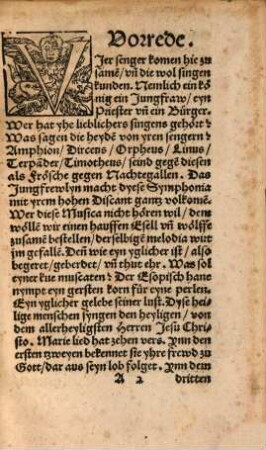 Vorrede.
VJer senger komen hie zu
samē/ vñ die wol singen
kunden. Nemlich ein kö
nig ein Jungfraw/ eyn
Priester vñ ein Bürger.
Wer hat yhe lieblichers singens gehört?
Was sagen die heydē von yren sengern?
Amphion/ Dirceus/ Orpheus/ Linus/
Terpāder/ Timotheus/ seind gegē diesen
als Frösche gegen Nachtegallen. Das
Jungfrewlyn macht dyese Symphonia
mit yrem hohen Discant gantz volkomē.
Wer diese Musica nicht hören wil/ dem
wöllē wir einen hauffen Esell vñ wölffe
zusamē bestellen/ derselbigē melodia wirt
jm gefallē. Den wie eyn yglicher ist/ also
begeret/ geberdet/ vñ thut ehr. Was sol
eyner kue muscaten? Der Esopisch hane
nympt eyn gersten korn für eyne perlen.
Eyn yglicher gelebe seiner lust. Dyse hei-
lige menschen syngen den heyligen/ von
dem allerheyligsten Herren Jesu Chri-
sto. Marie lied hat zehen vers. Ynn den
ersten zweyen bekennet sie yhre frewd zu
Gott/ dar aus seyn lob folget. Ynn dem
A 2 dritten